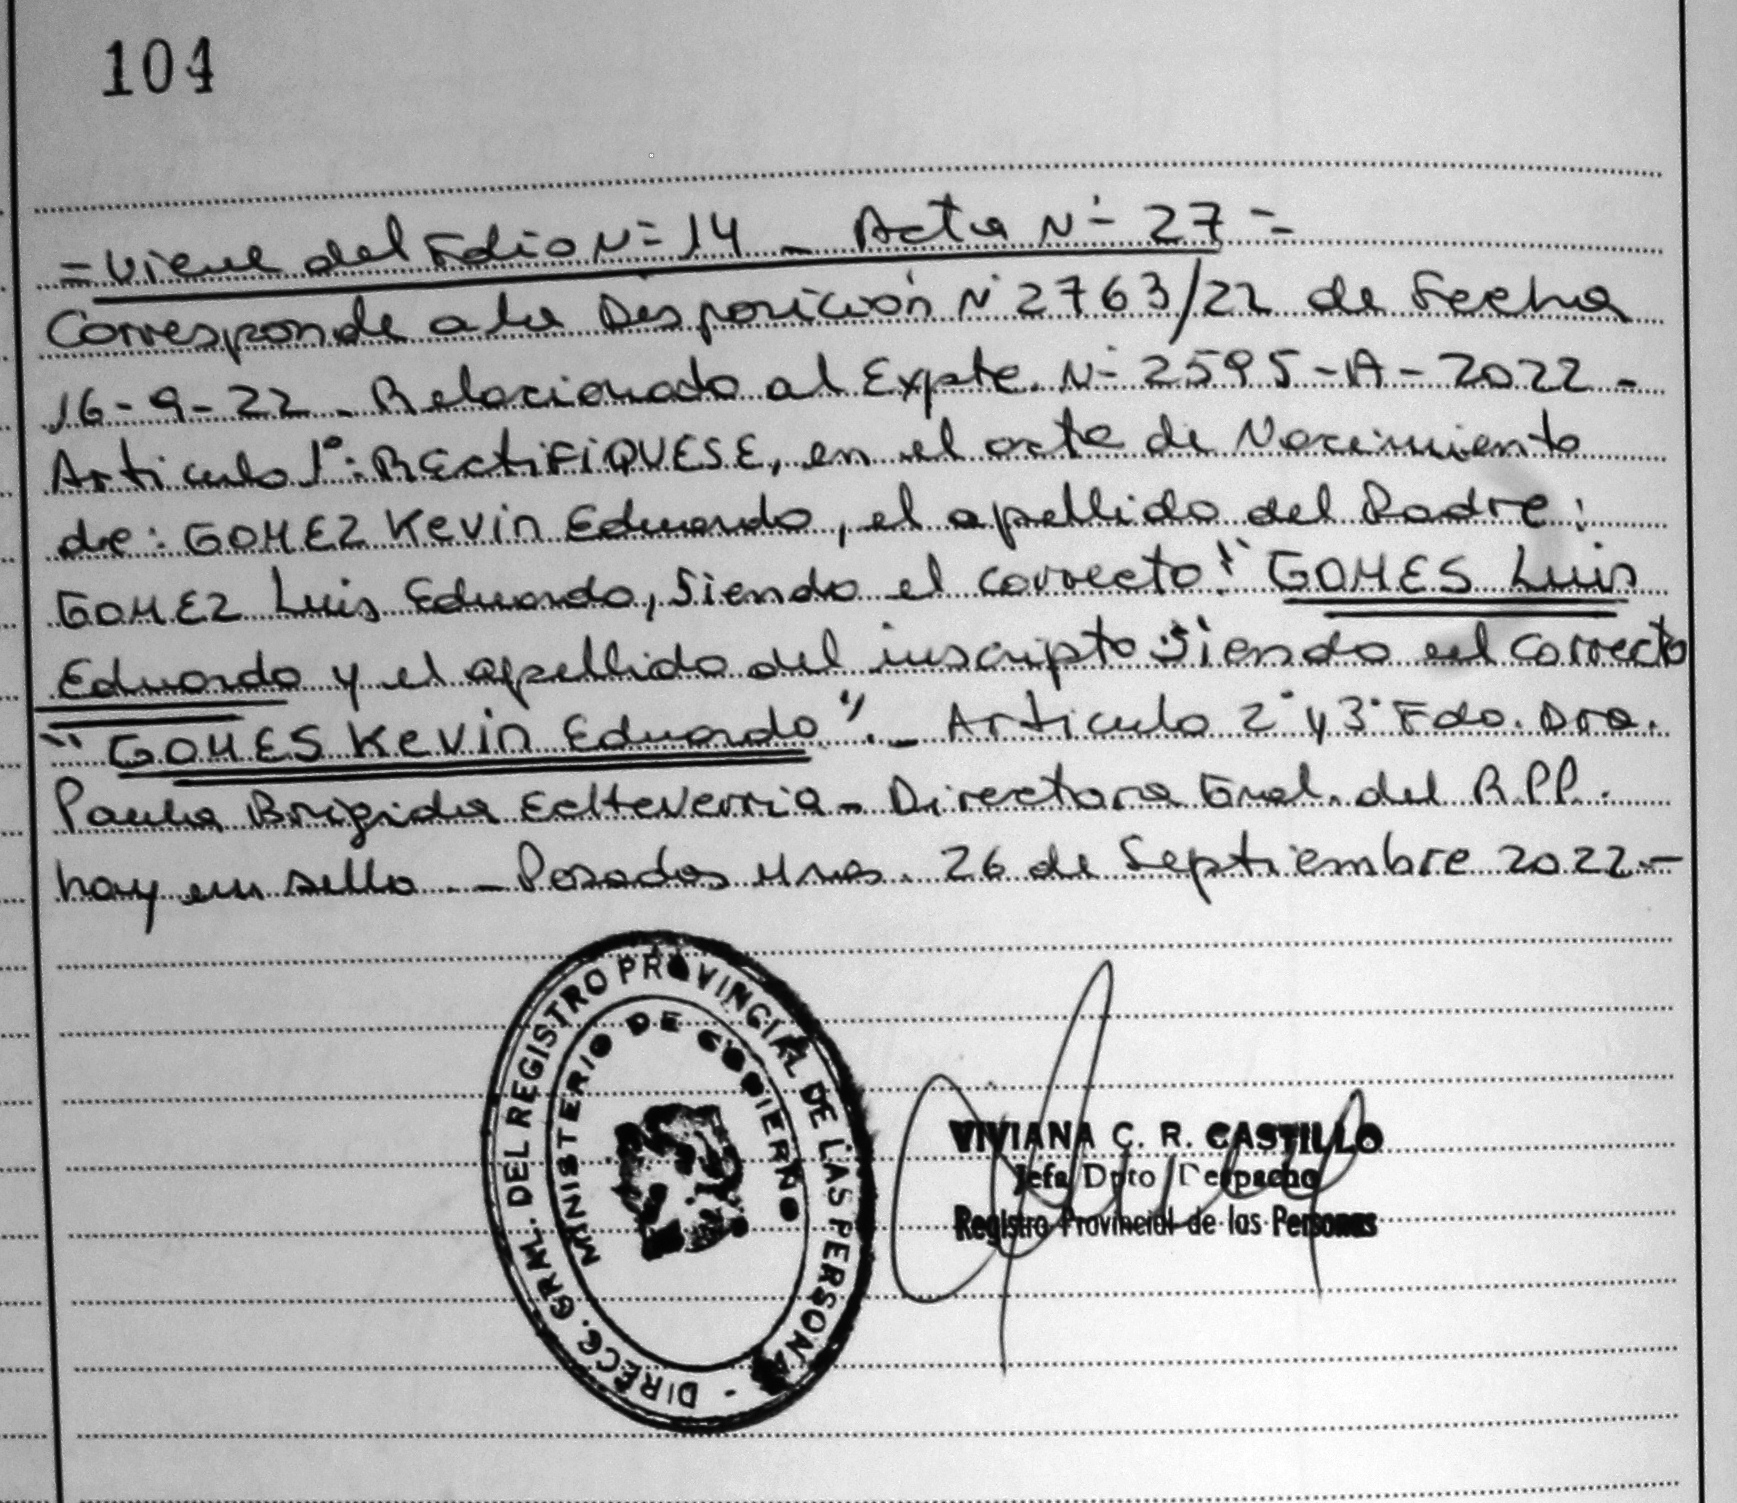 104
= Viene del Folio Nº 14 - Acta Nº 27 =
Corresponde a la Disposición Nº 2763/22 de Fecha
16-9-22 - Relacionado al Expte. Nº 2595-A-2022 -
Articulo 1º: RECtiFiQUESE, en el acta de Nacimiento
de: GOMEZ Kevin Eduardo, el apellido del Padre:
GOMEZ Luis Eduardo, Siendo el correcto: "GOMES Luis
Eduardo y el apellido del inscripto Siendo el correcto
"GOMES Kevin Eduardo". - Articulo 2º y 3º Fdo. Dra.
Paula Brigida Echeverria - Directora Gral. del R.P.P.
hay un sello. - Posadas Mnes. 26 de Septiembre 2022.-
DIRECC. GRAL. DEL REGISTRO PROVINCIAL DE LAS PERSONAS -
MINISTERIO DE GOBIERNO
VIVIANA C. R. CASTILLO
Jefa Dpto Despacho
Registro Provincial de las Personas